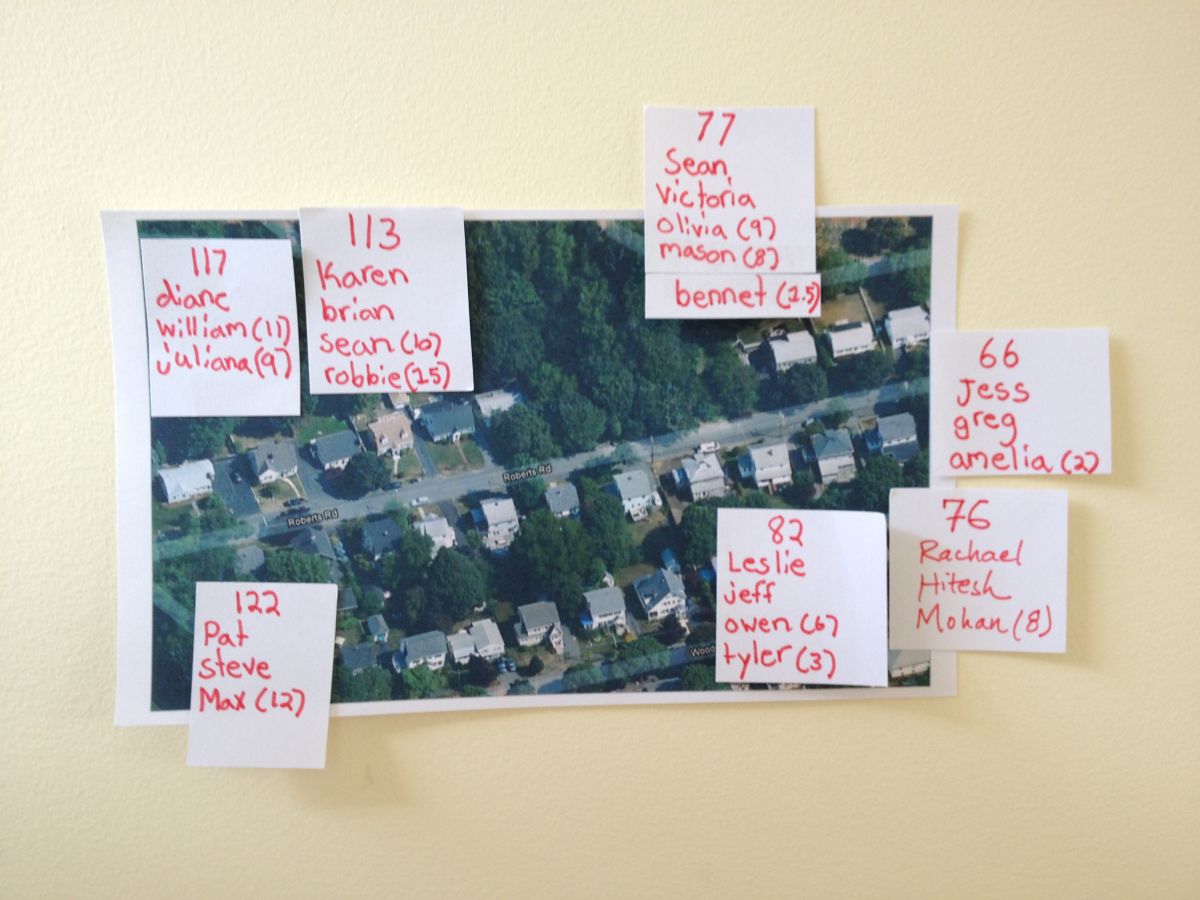 77
Sean
victoria
olivia (9)
mason (8)
bennet (1.5)
117
diane
william (11)
juliana (9)
113
Karen
brian
sean (6)
robbie (15)
66
Jess
greg
amelia (2)
Roberts Rd
Roberts Rd
76
Rachael
Hitesh
Mohan (8)
82
Leslie
jeff
owen (6)
tyler (3)
122
Pat
steve
Max (12)
Wood